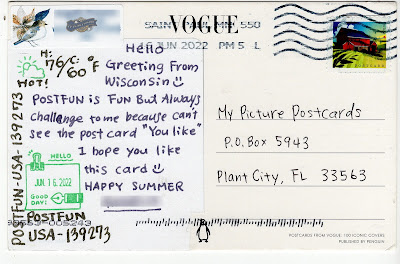 SAINT PAUL MN 550
VOGUE
JUN 2022 PM 5 L
Hello
Greeting From
Wisconsin
Hi
76/60 °F
HOT!
POSTFUN is FUN But Always
challenge to me because can't
see the post card "You like"
I hope you like
this card
HAPPY SUMMER
HELLO
JUN. 1 6. 2022
GOOD DAY!
POSTFUN-USA-139273
POSTFUN
USA-139273
My Picture Postcards
P.O. Box 5943
Plant City, FL 33563
POSTCARDS FROM VOGUE: 100 ICONIC COVERS
PUBLISHED BY PENGUIN